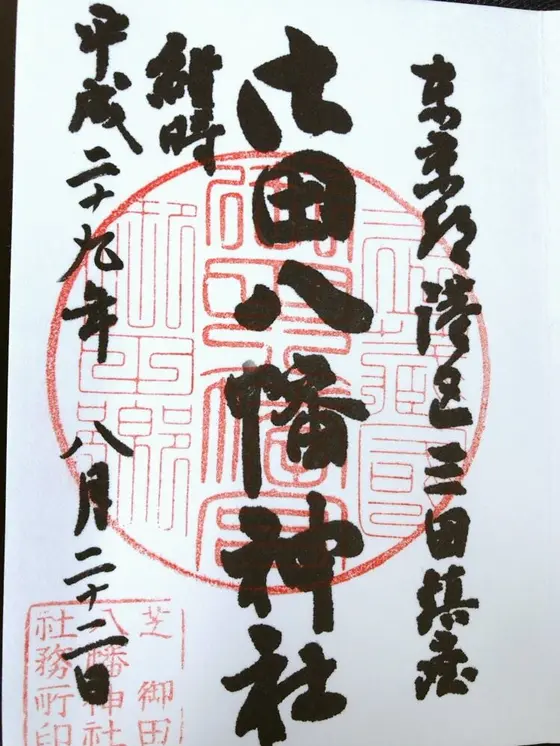 東京都港区三田鎮座
御田八幡神社
維時
平成二十九年八月二十二日
芝御田
八幡神社
社務所印